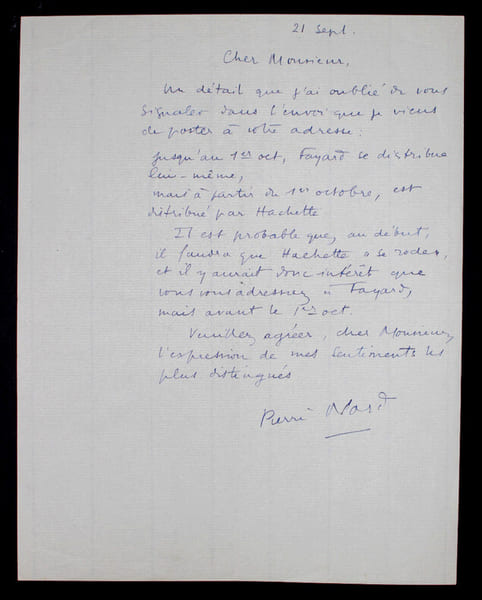 21 Sept.
Cher Monsieur,
Un détail que j'ai oublié de vous
signaler dans l'envoi que je viens
de poster à votre adresse :
jusqu'au 1er oct, Fayard se distribue
lui-même,
mais à partir du 1er octobre, est
distribué par Hachette
Il est probable que, au début,
il faudra que Hachette se roder,
et il y aurait donc intérêt que
vous vous adressiez à Fayard,
mais avant le 1er oct.
Veuillez agréer, cher Monsieur,
l'expression de mes sentiments les
plus distingués
Pierre Nord